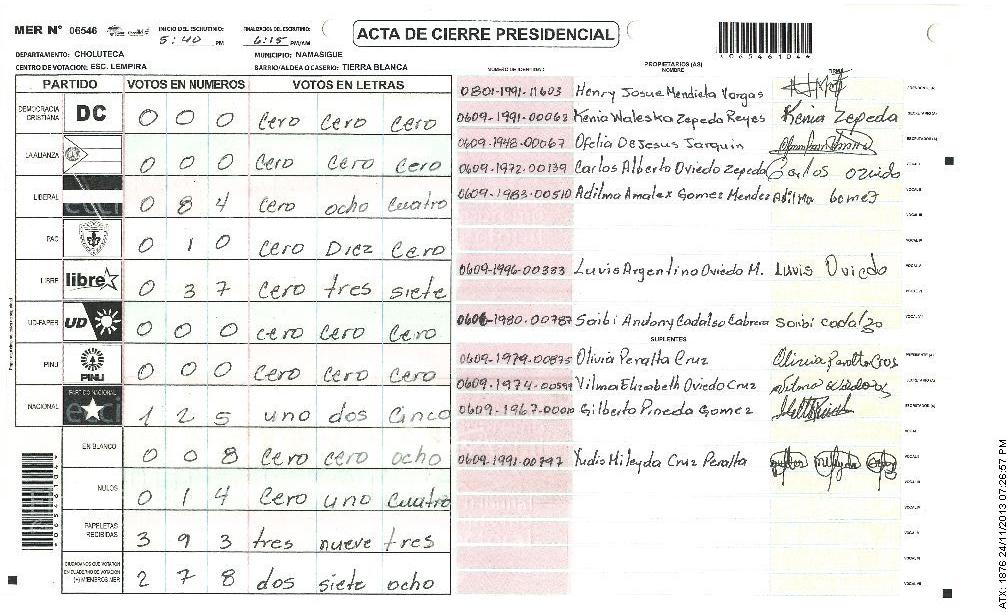 MER Nº 06546 INICIO DEL ESCRUTINIO: 5:40 PM FINALIZACION DEL ESCRUTINIO: 6:15 PM/AM
ACTA DE CIERRE PRESIDENCIAL
DEPARTAMENTO: CHOLUTECA MUNICIPIO: NAMASIGUE
CENTRO DE VOTACION: ESC. LEMPIRA BARRIO/ALDEA O CASERIO: TIERRA BLANCA
PARTIDO VOTOS EN NUMEROS VOTOS EN LETRAS
DEMOCRACIA CRISTIANA DC 0 0 0 cero cero cero
LA ALIANZA 0 0 0 cero cero cero
LIBERAL 0 8 4 cero ocho cuatro
PAC 0 1 0 cero Diez cero
LIBRE libre 0 3 7 cero tres siete
UD-FAPER UD 0 0 0 cero cero cero
PINU PINU 0 0 0 cero cero cero
NACIONAL 1 2 5 uno dos cinco
EN BLANCO 0 0 8 cero cero ocho
NULOS 0 1 4 cero uno cuatro
PAPELETAS RECIBIDAS 3 9 3 tres nueve tres
CIUDADANOS QUE VOTARON EN CUADERNO DE VOTACION (+) MIEMBROS MER 2 7 8 dos siete ocho
NUMERO DE IDENTIDAD PROPIETARIOS (AS) NOMBRE FIRMA
0801-1991-11603 Henry Josue Mendieta Vargas
0609-1991-00062 Kenia Waleska Zepeda Reyes Kenia Zepeda
0609-1948-00067 Ofelia De Jesus Jarquin
0609-1972-00139 Carlos Alberto Oviedo Zepeda Carlos oviedo
0609-1983-00510 Adilma Amalex Gomez Mendez Adilma Gomez
0609-1996-00333 Luvis Argentino Oviedo M. Luvis Oviedo
1980-00787 Saibi Andony Cadalso Cabrera Saibi cadalzo
SUPLENTES
0609-1979-00875 Olivia Peralta Cruz
0609-1974-00599 Vilma Elizabeth Oviedo Cruz
0609-1967-00010 Gilberto Pineda Gomez
0609-1991-00797 Yudis Mileyda Cruz Peralta
ATX: 1876 24/11/2013 07:26:57 PM